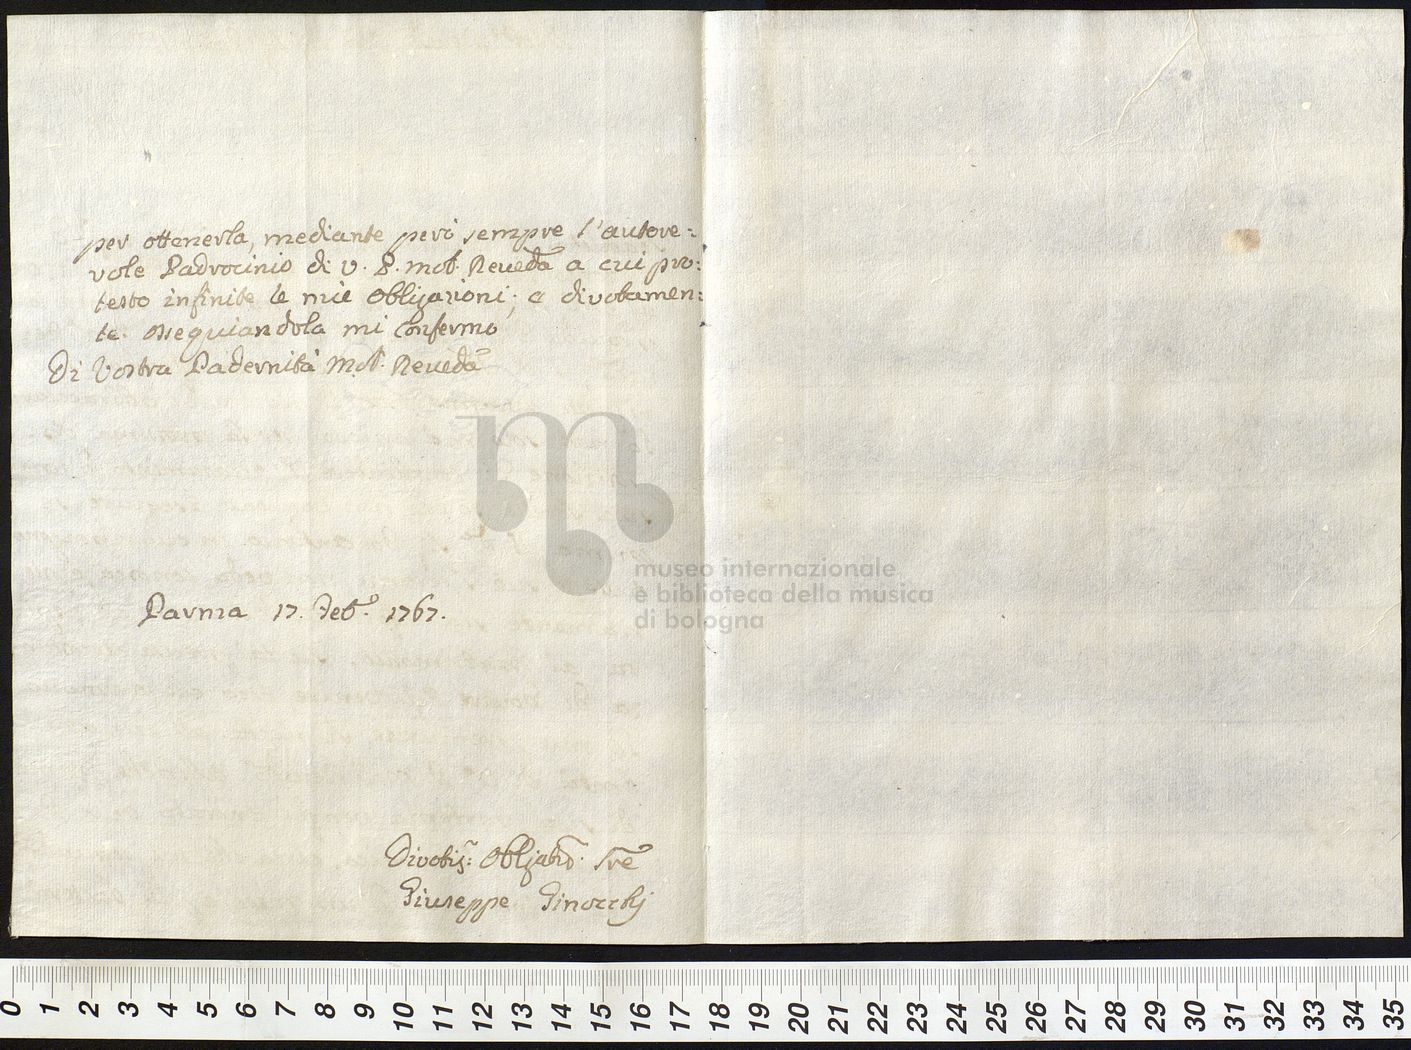 per ottenerla, mediante però sempre l'autore=
vole Padrocinio di V. P. Mol. Reveda a cui pro=
testo infinite le mie obligazioni; e divotamen=
te ossequiandola mi confermo
Di Vostra Padernità Mol. Reveda
Parma 17. Feb.o 1767.
Divotis: Obligatio. Sre
Giuseppe Ginocchj
museo internazionale
e biblioteca della musica
di bologna
0 1 2 3 4 5 6 7 8 9 10 11 12 13 14 15 16 17 18 19 20 21 22 23 24 25 26 27 28 29 30 31 32 33 34 35